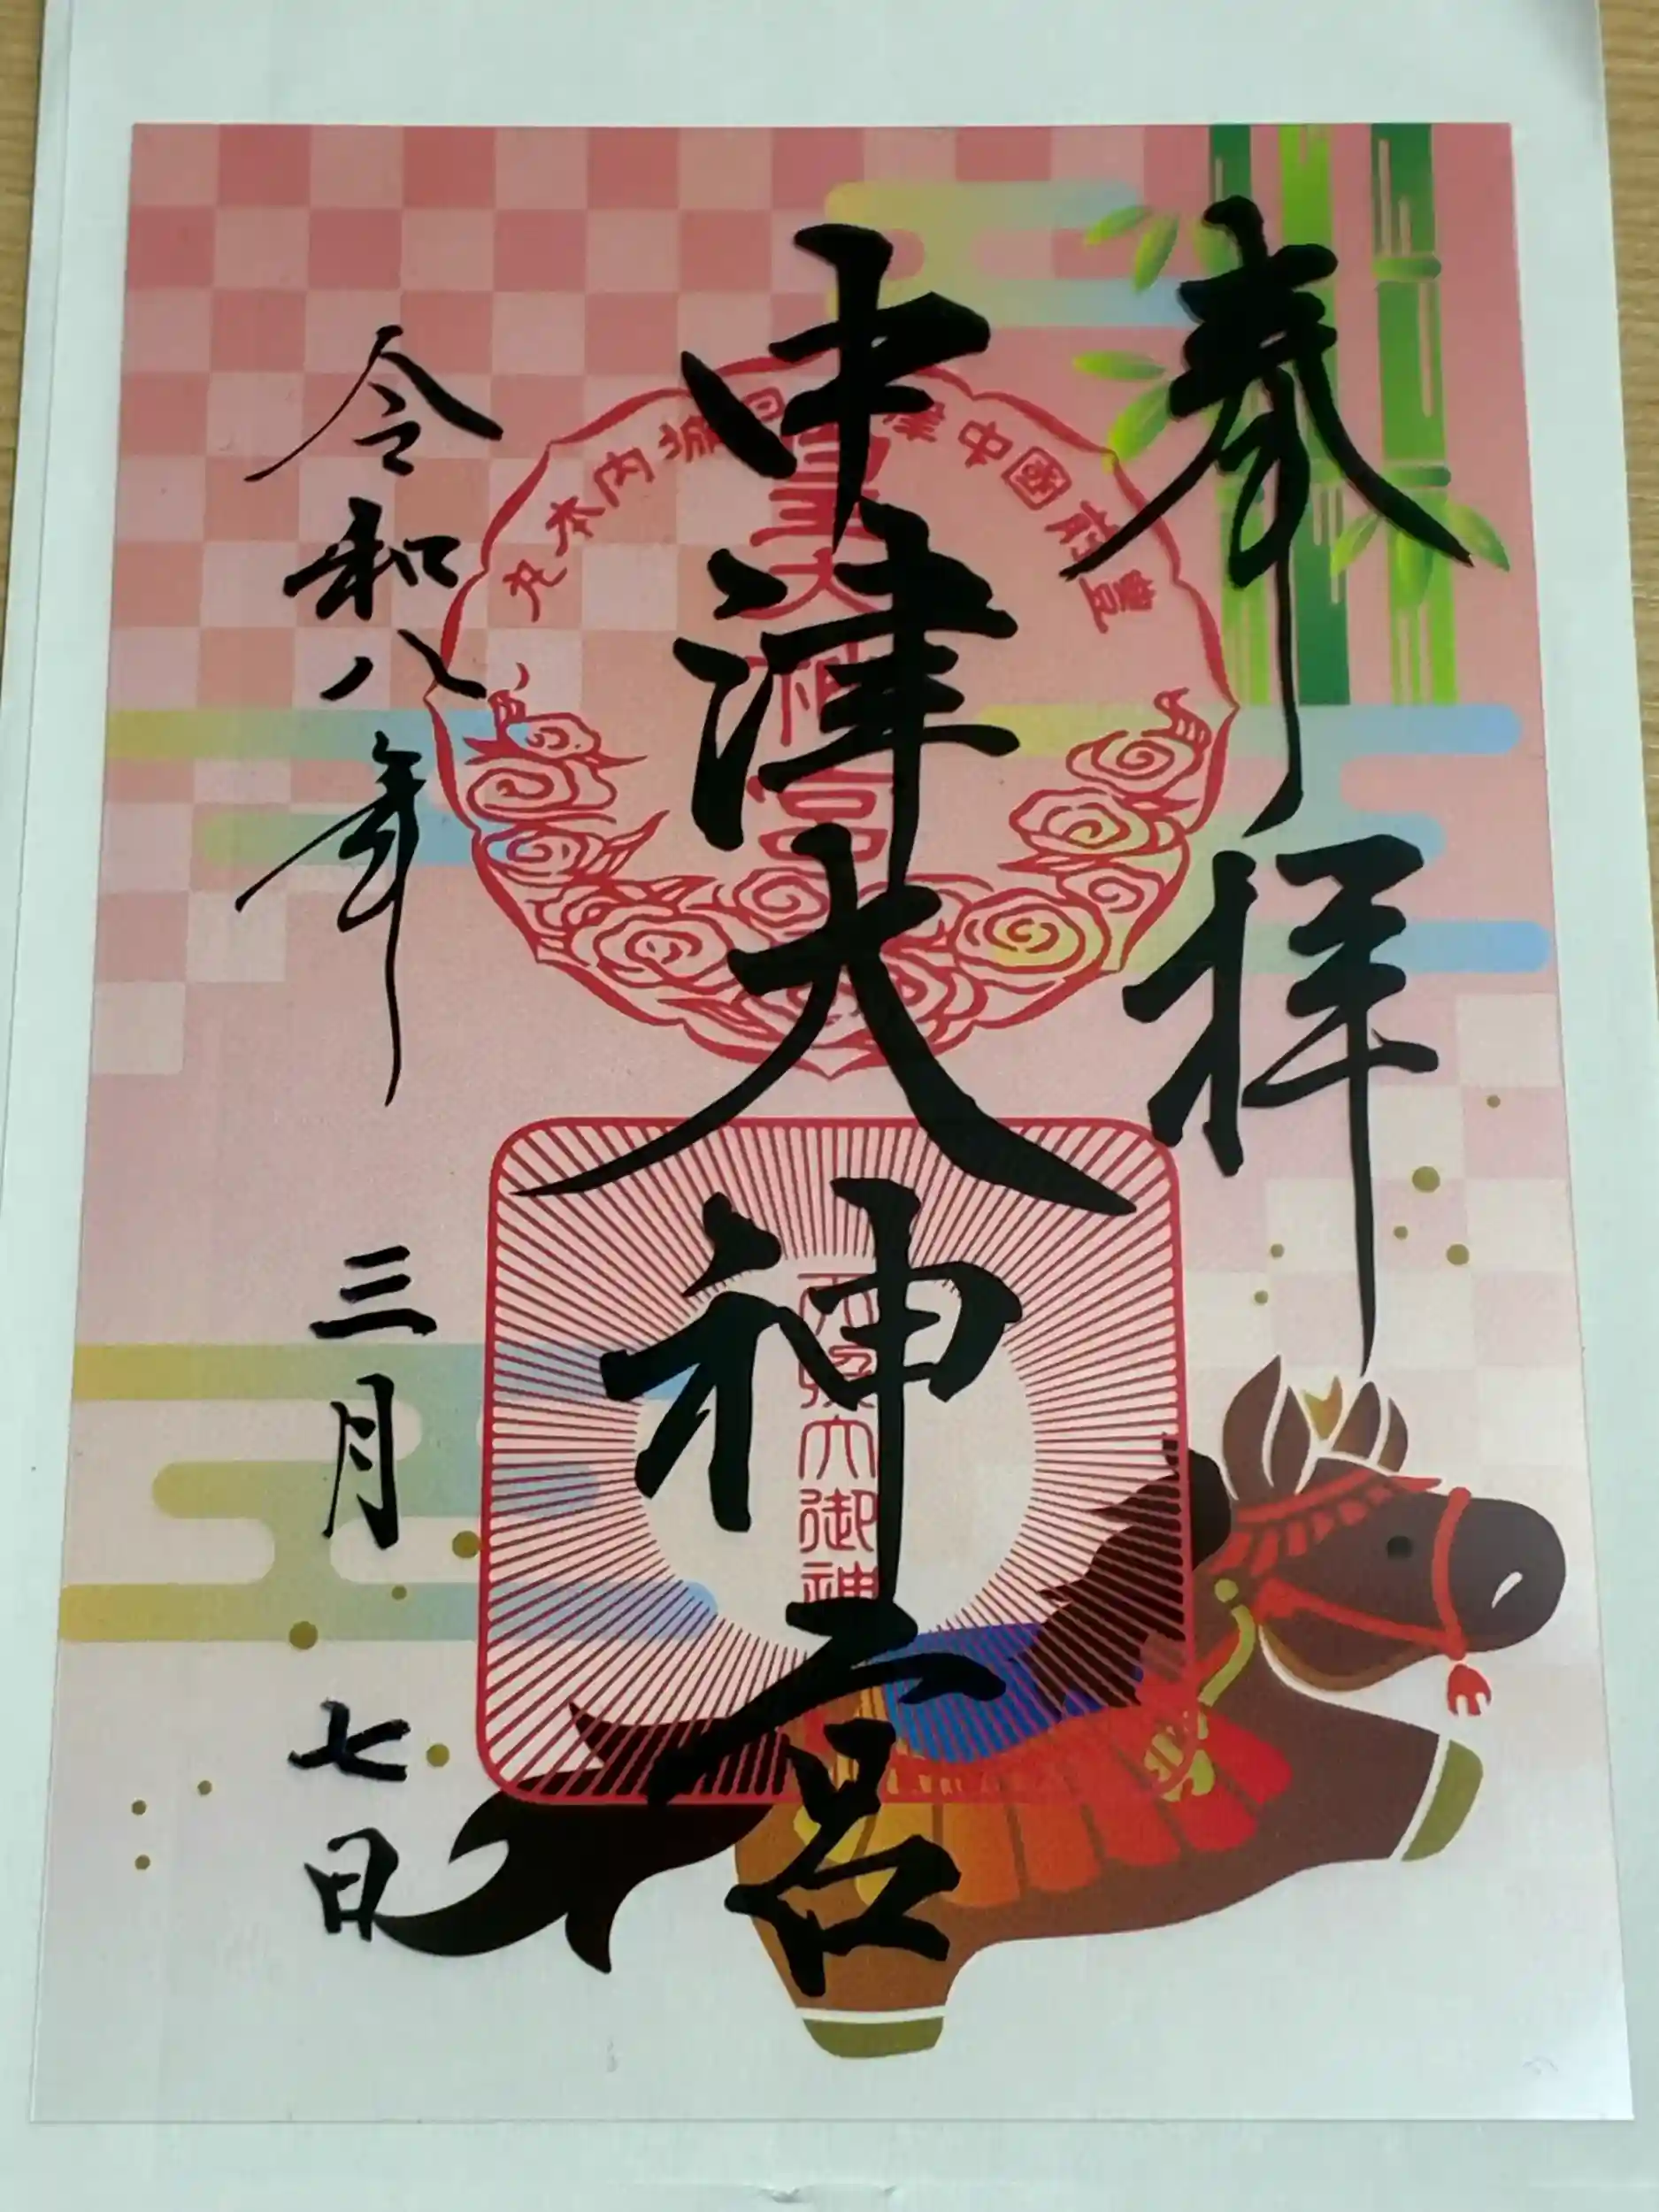 奉拝
中津大神宮
令和八年 三月 七日
豊前國中津
内本丸
皇大神宮
大御神